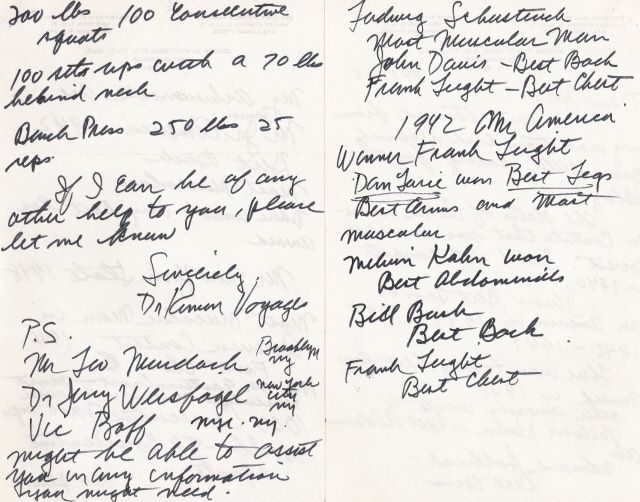 200 lbs 100 Consecutive
squats
100 sits ups with a 70 lbs
behind neck
Bench Press 250 lbs 25
reps
If I can be of any
other help to you, please
let me know
Sincerely,
Dr Voyages
P.S.
Mr Leo Murdock Brooklyn
NY
Dr Jerry Weisfogel New York
City
NY
Vic Boff NYC. NY.
might be able to assist
you in any information
you might need.
Ludwig
Most Muscular Man
John Davis - Best Back
Frank Leight - Best Chest
1942 Mr America
Winner Frank Leight
Dan Lurie won Best Legs
Best Arms and Most
Muscular
Melvin Kahn won
Best Abdominals
Bill Bush
Best Back.
Frank Leight
Best Chest